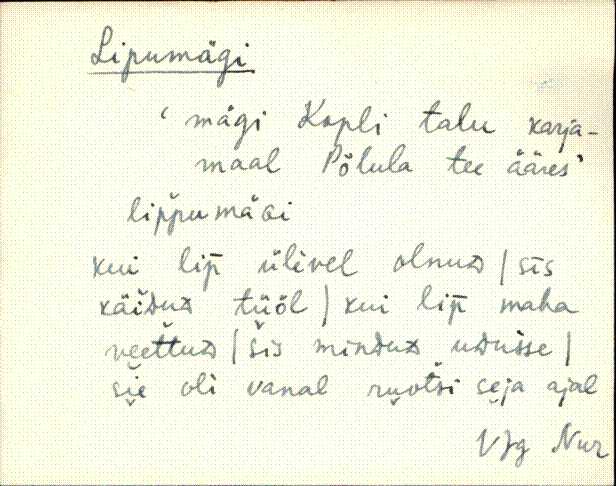 Lipumägi
‘mägi Kopli talu karja-
maal Põlula tee ääres’
lip̆pumäɢi
kui lip̄ ülivel olnuᴅ | sīs
käiᴅuᴅ tüöl | kui lip̄ maha
veettuᴅ | sīs minᴅuᴅ uᴅusse |
sie oli vanal ruotsi seja ajal
VJg Nur